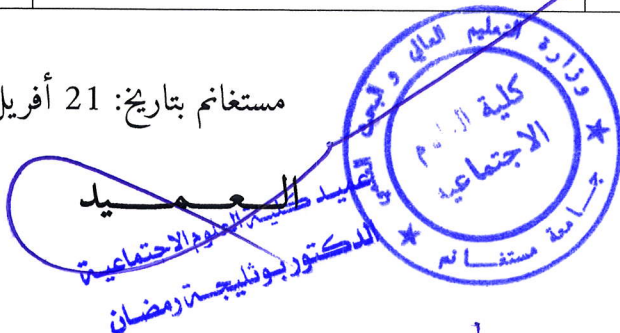 مستغانم بتاريخ: 21 أفريل
العميد
عميد كلية العلوم الاجتماعية
الدكتور بوثليجة رمضان
وزارة التعليم العالي و البحث العلمي
جامعة مستغانم
كلية العلوم
الاجتماعية